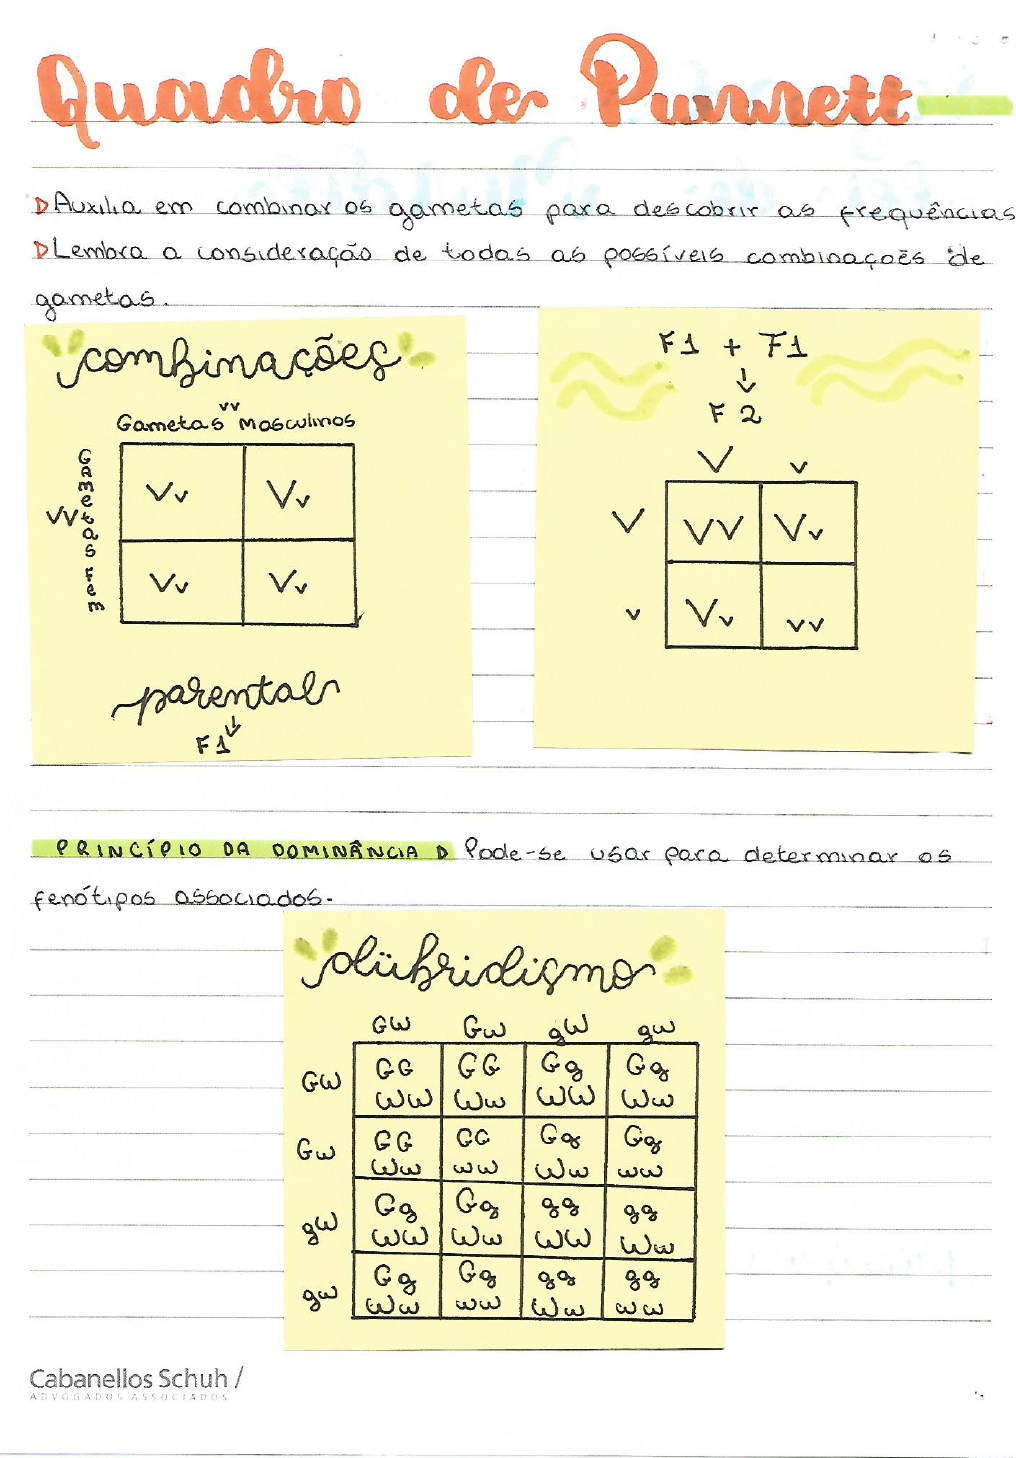 Quadro de Punnett
Auxilia em combinar os gametas para descobrir as frequências
Lembra a consideração de todas as possíveis combinações de
gametas.
combinações
vv
Gametas masculinos
Gametas fem
VV
Vv Vv
Vv Vv
parental
F1
F1 + F1
F2
V v
V VV Vv
v Vv vv
PRINCÍPIO DA DOMINÂNCIA Pode-se usar para determinar os
fenótipos associados.
diíbridismo
GW Gw gW gw
GW GG GG Gg Gg
WW Ww WW Ww
Gw GG GG Gg Gg
Ww ww Ww ww
gW Gg Gg gg gg
WW Ww WW Ww
gw Gg Gg gg gg
Ww ww Ww ww
Cabanellos Schuh /
ADVOGADOS ASSOCIADOS